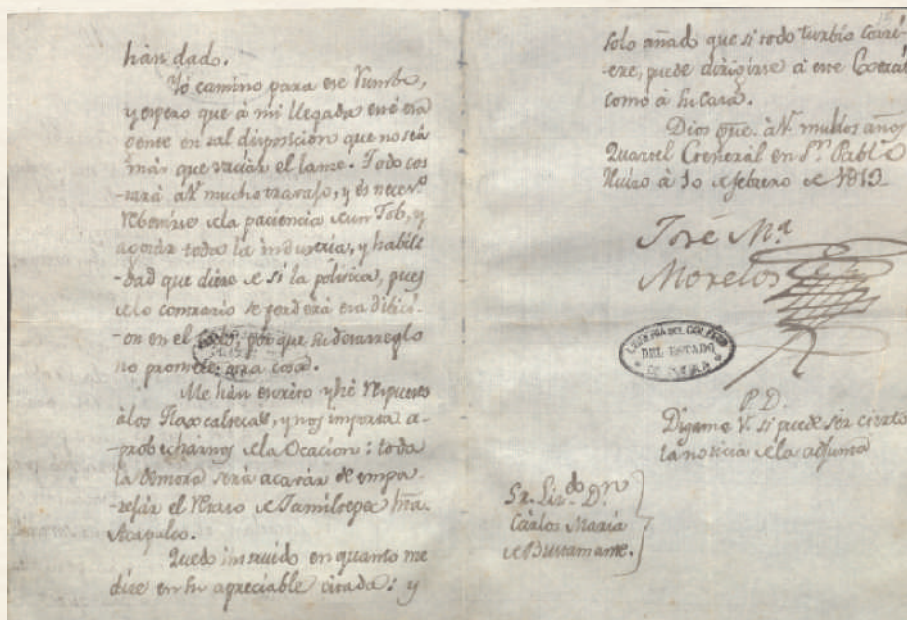 han dado.
Yo camino para ese Rumbo,
y espero que à mi llegada esté esa
gente en tal disposicion que no sea
más que vaciár el lance. Todo cos-
tará à V. mucho travajo, y és neces.º
rebestirse de la paciencia de un Job, y
agotár toda la industria, y habili
-dad que diese de sí la política, pues
de lo contrario se perderá esa divici-
-on en el todo, por que su desarreglo
no promete otra cosa.
Me hán escrito y hé respuesto
à los Tlaxcaltecas, y nos importa a-
-probechárnos de la Ocacion: toda
la demora será acavár de empa-
-rejár el resto de Jamiltepec hta.
Acapulco.
Quedo instruido en quanto me
dice en su apreciable citada: y
solo añado que si todo turbio corri-
ere, puede dirigirse à este Quartel
como à su casa.
Dios gue. à V. muchos años
Quartel General en Sn. Pablo
Huizo à 10 de febrero de 1813
José Ma.
Morelos
DEL ESTADO
P.D.
Digame V. si puede sér cierta
la noticia de la adjunta
Sr. Lic.do Dn
Carlos María
de Bustamante.